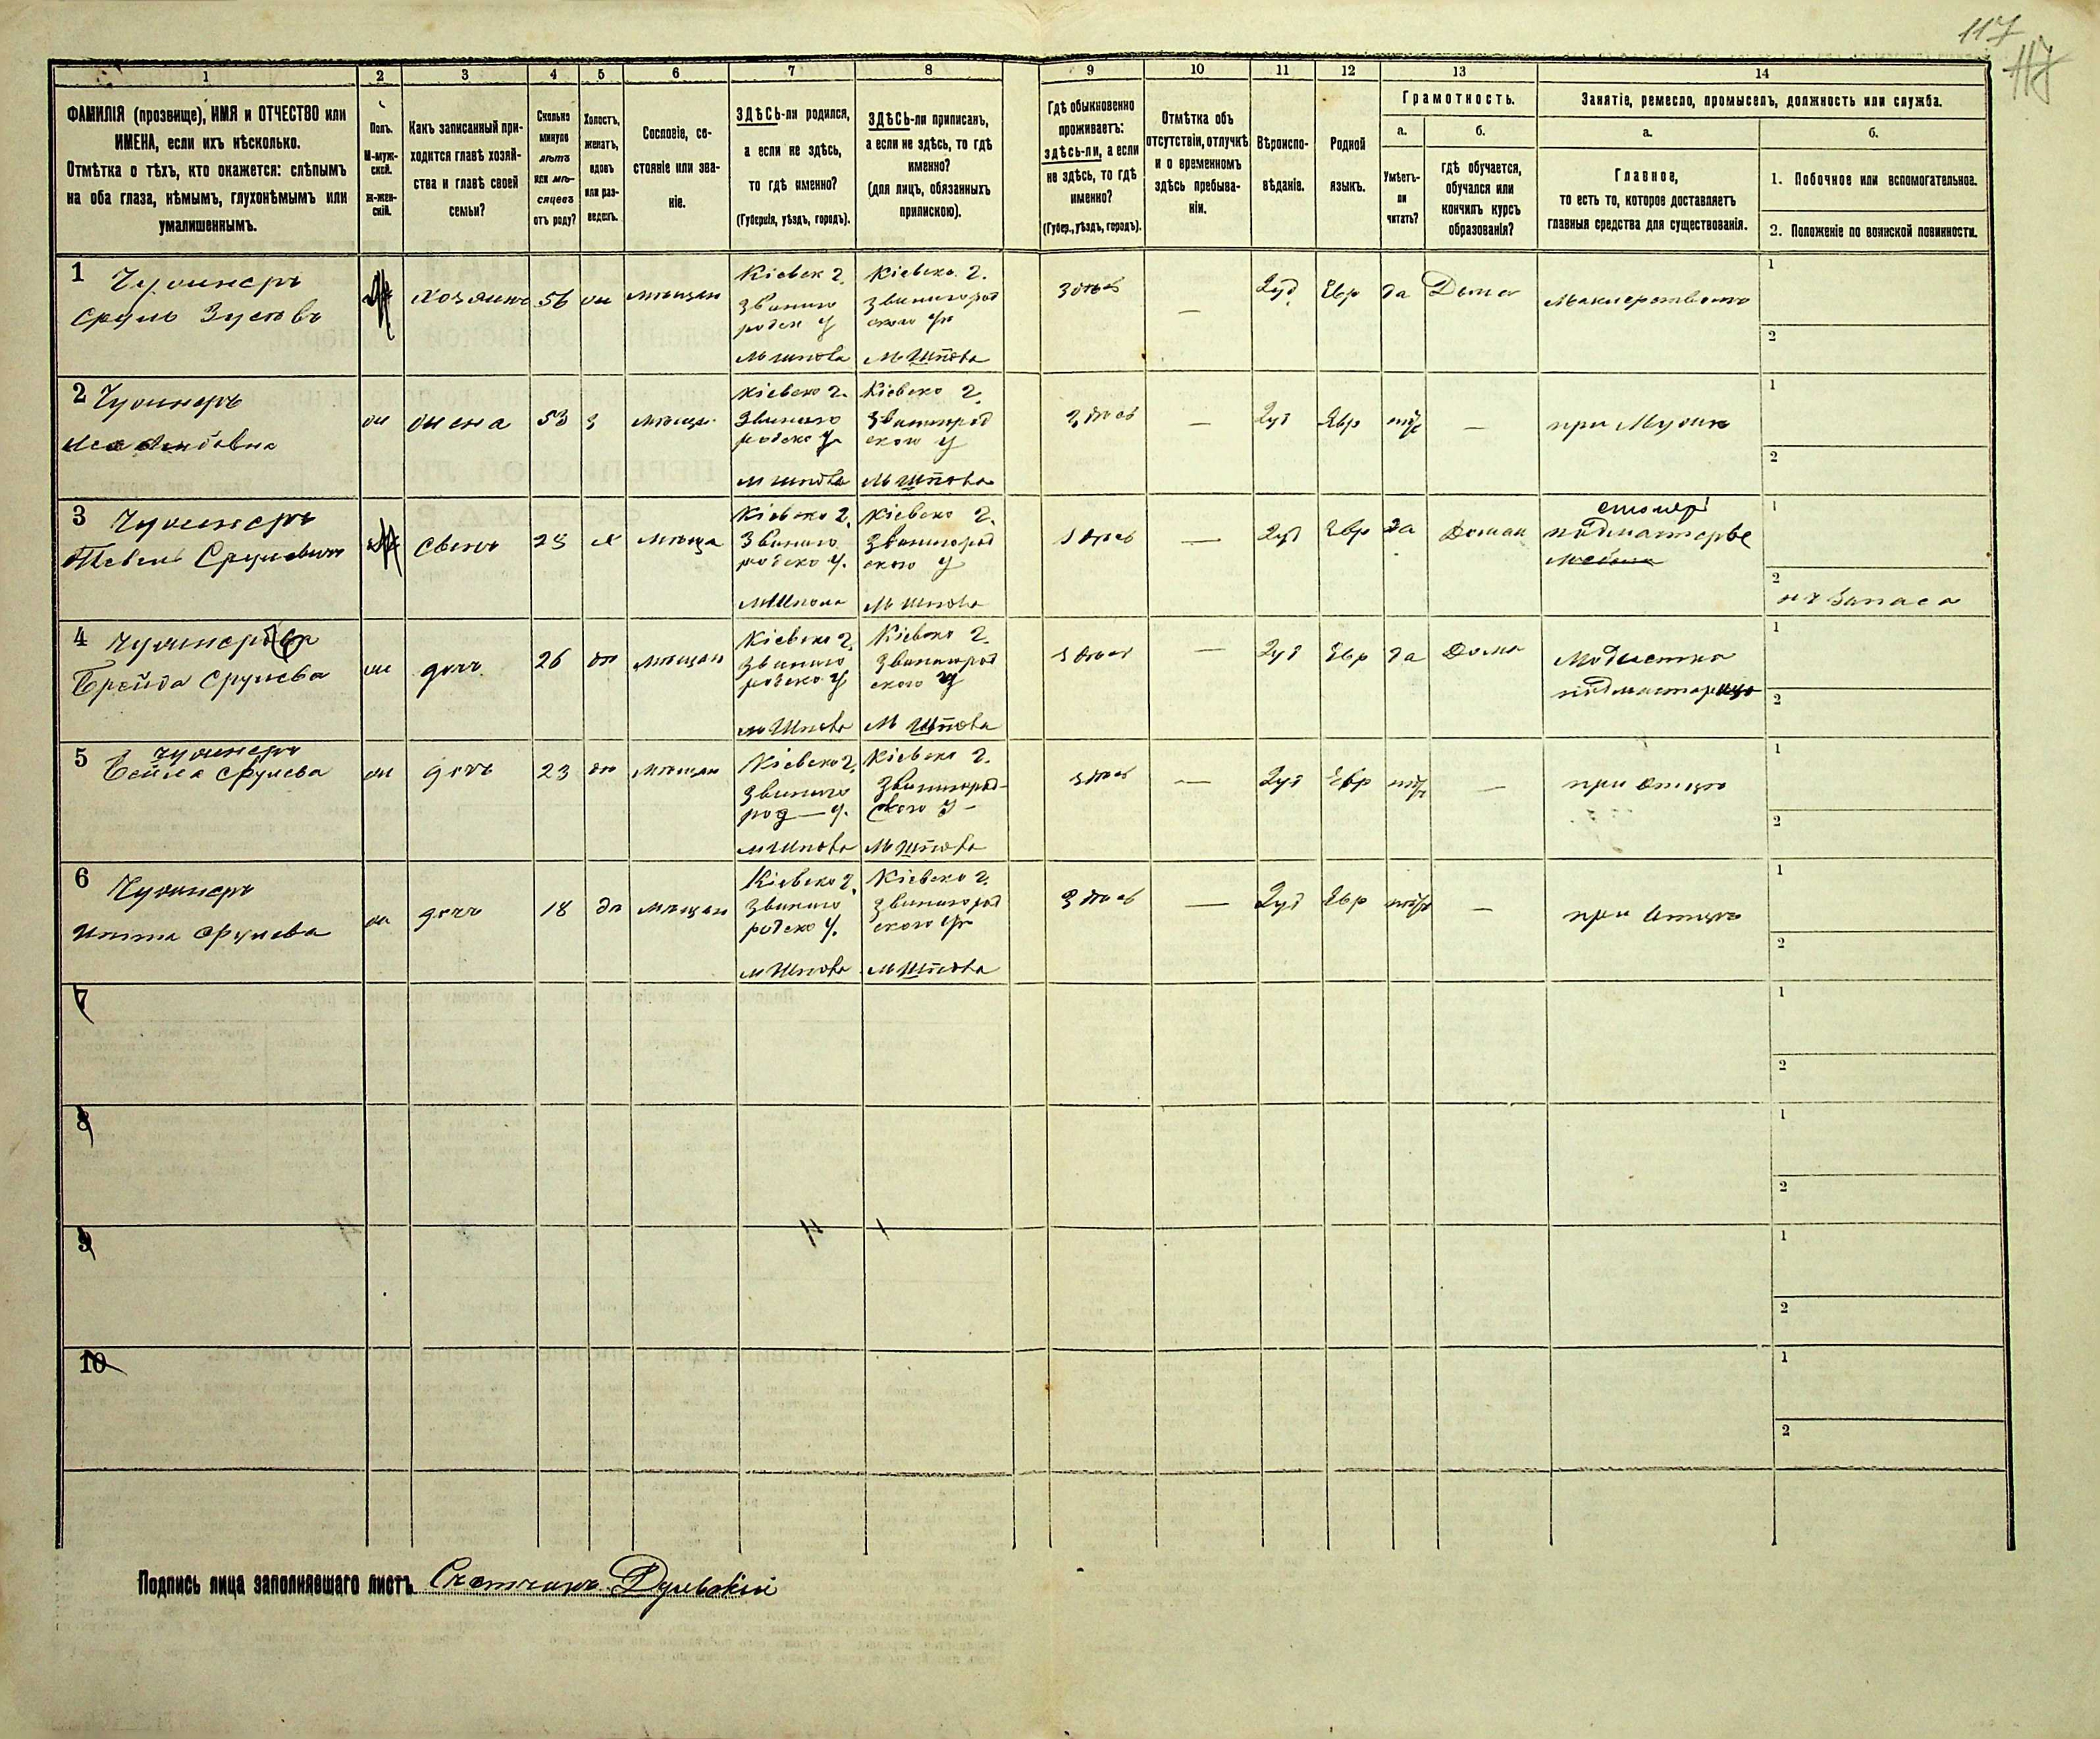 117
117
1 2 3 4 5 6 7 8 9 10 11 12 13 14
ФАМИЛІЯ (прозвище), ИМЯ и ОТЧЕСТВО или
ИМЕНА, если ихъ нѣсколько.
Отмѣтка о тѣхъ, кто окажется: слѣпымъ
на оба глаза, нѣмымъ, глухонѣмымъ или
умалишеннымъ.
Полъ.
М-муж-
ской.
Ж-жен-
скій.
Какъ записанный при-
ходится главѣ хозяй-
ства и главѣ своей
семьи?
Сколько
минуло
лѣтъ
или мѣ-
сяцевъ
отъ роду?
Холостъ,
женатъ,
вдовъ
или раз-
веденъ.
Сословіе, со-
стояніе или зва-
ніе.
ЗДѢСЬ-ли родился,
а если не здѣсь,
то гдѣ именно?
(Губернія, уѣздъ, городъ).
ЗДѢСЬ-ли приписанъ,
а если не здѣсь, то гдѣ
именно?
(для лицъ, обязанныхъ
припискою).
Гдѣ обыкновенно
проживаетъ:
здѣсь-ли, а если
не здѣсь, то гдѣ
именно?
(Губер., уѣздъ, городъ).
Отмѣтка объ
отсутствіи, отлучкѣ
и о временномъ
здѣсь пребыва-
ніи.
Вѣроиспо-
вѣданіе.
Родной
языкъ.
Грамотность.
а.
Умѣетъ-
ли
читать?
б.
гдѣ обучается,
обучался или
кончилъ курсъ
образованія?
Занятіе, ремесло, промыселъ, должность или служба.
а.
Главное,
то есть то, которое доставляетъ
главныя средства для существованія.
б.
1. Побочное или вспомогательное.
2. Положеніе по воинской повинности.
1
Сруль
хозяинъ 56 мѣщан
Кіевск г.
Кіевско г.
Звиниго
родск у
Звинигород
ского у
м Шпола
м Шпола
здѣсь
—
Іуд Евр да Дома
1
2
2
жена 53 мѣщан
Кіевско г.
Звиниго
родско у
м Шпола
Кіевско г.
Звинигород
ского у
м Шпола
здѣсь — Іуд Евр нѣт —
при мужѣ
1
2
3
Срулевич
сынъ х мѣща
Кіевско г.
Звиниго
родско у.
м Шпола
Кіевско г.
Звинигород
ского у
м Шпола
здѣсь — Іуд Евр да Дома
столяр
подмастерье
1
2
из запаса
4
Брейда Срулева
дочь 26 мѣщан
Кіевско г.
Звиниго
родско у
м Шпола
Кіевско г.
Звинигород
ского у
м Шпола
здѣсь — Іуд Евр да Дома
Модистка
подмастерица
1
2
5
Бейла Срулева
дочь 23 мѣщан
Кіевско г.
Звиниго
род— у.
м Шпола
Кіевско г.
Звинигород-
ского у-
м Шпола
здѣсь — Іуд Евр нѣт —
при отцѣ
1
2
6
Срулева
дочь 18 мѣщан
Кіевско г.
Звиниго
родско у.
м Шпола
Кіевско г.
Звинигород
ского у
м Шпола
здѣсь — Іуд Евр нѣт —
при отцѣ
1
2
7
1
2
8
1
2
9
1
2
10
1
2
Подпись лица заполнявшаго листъ Счетчикъ